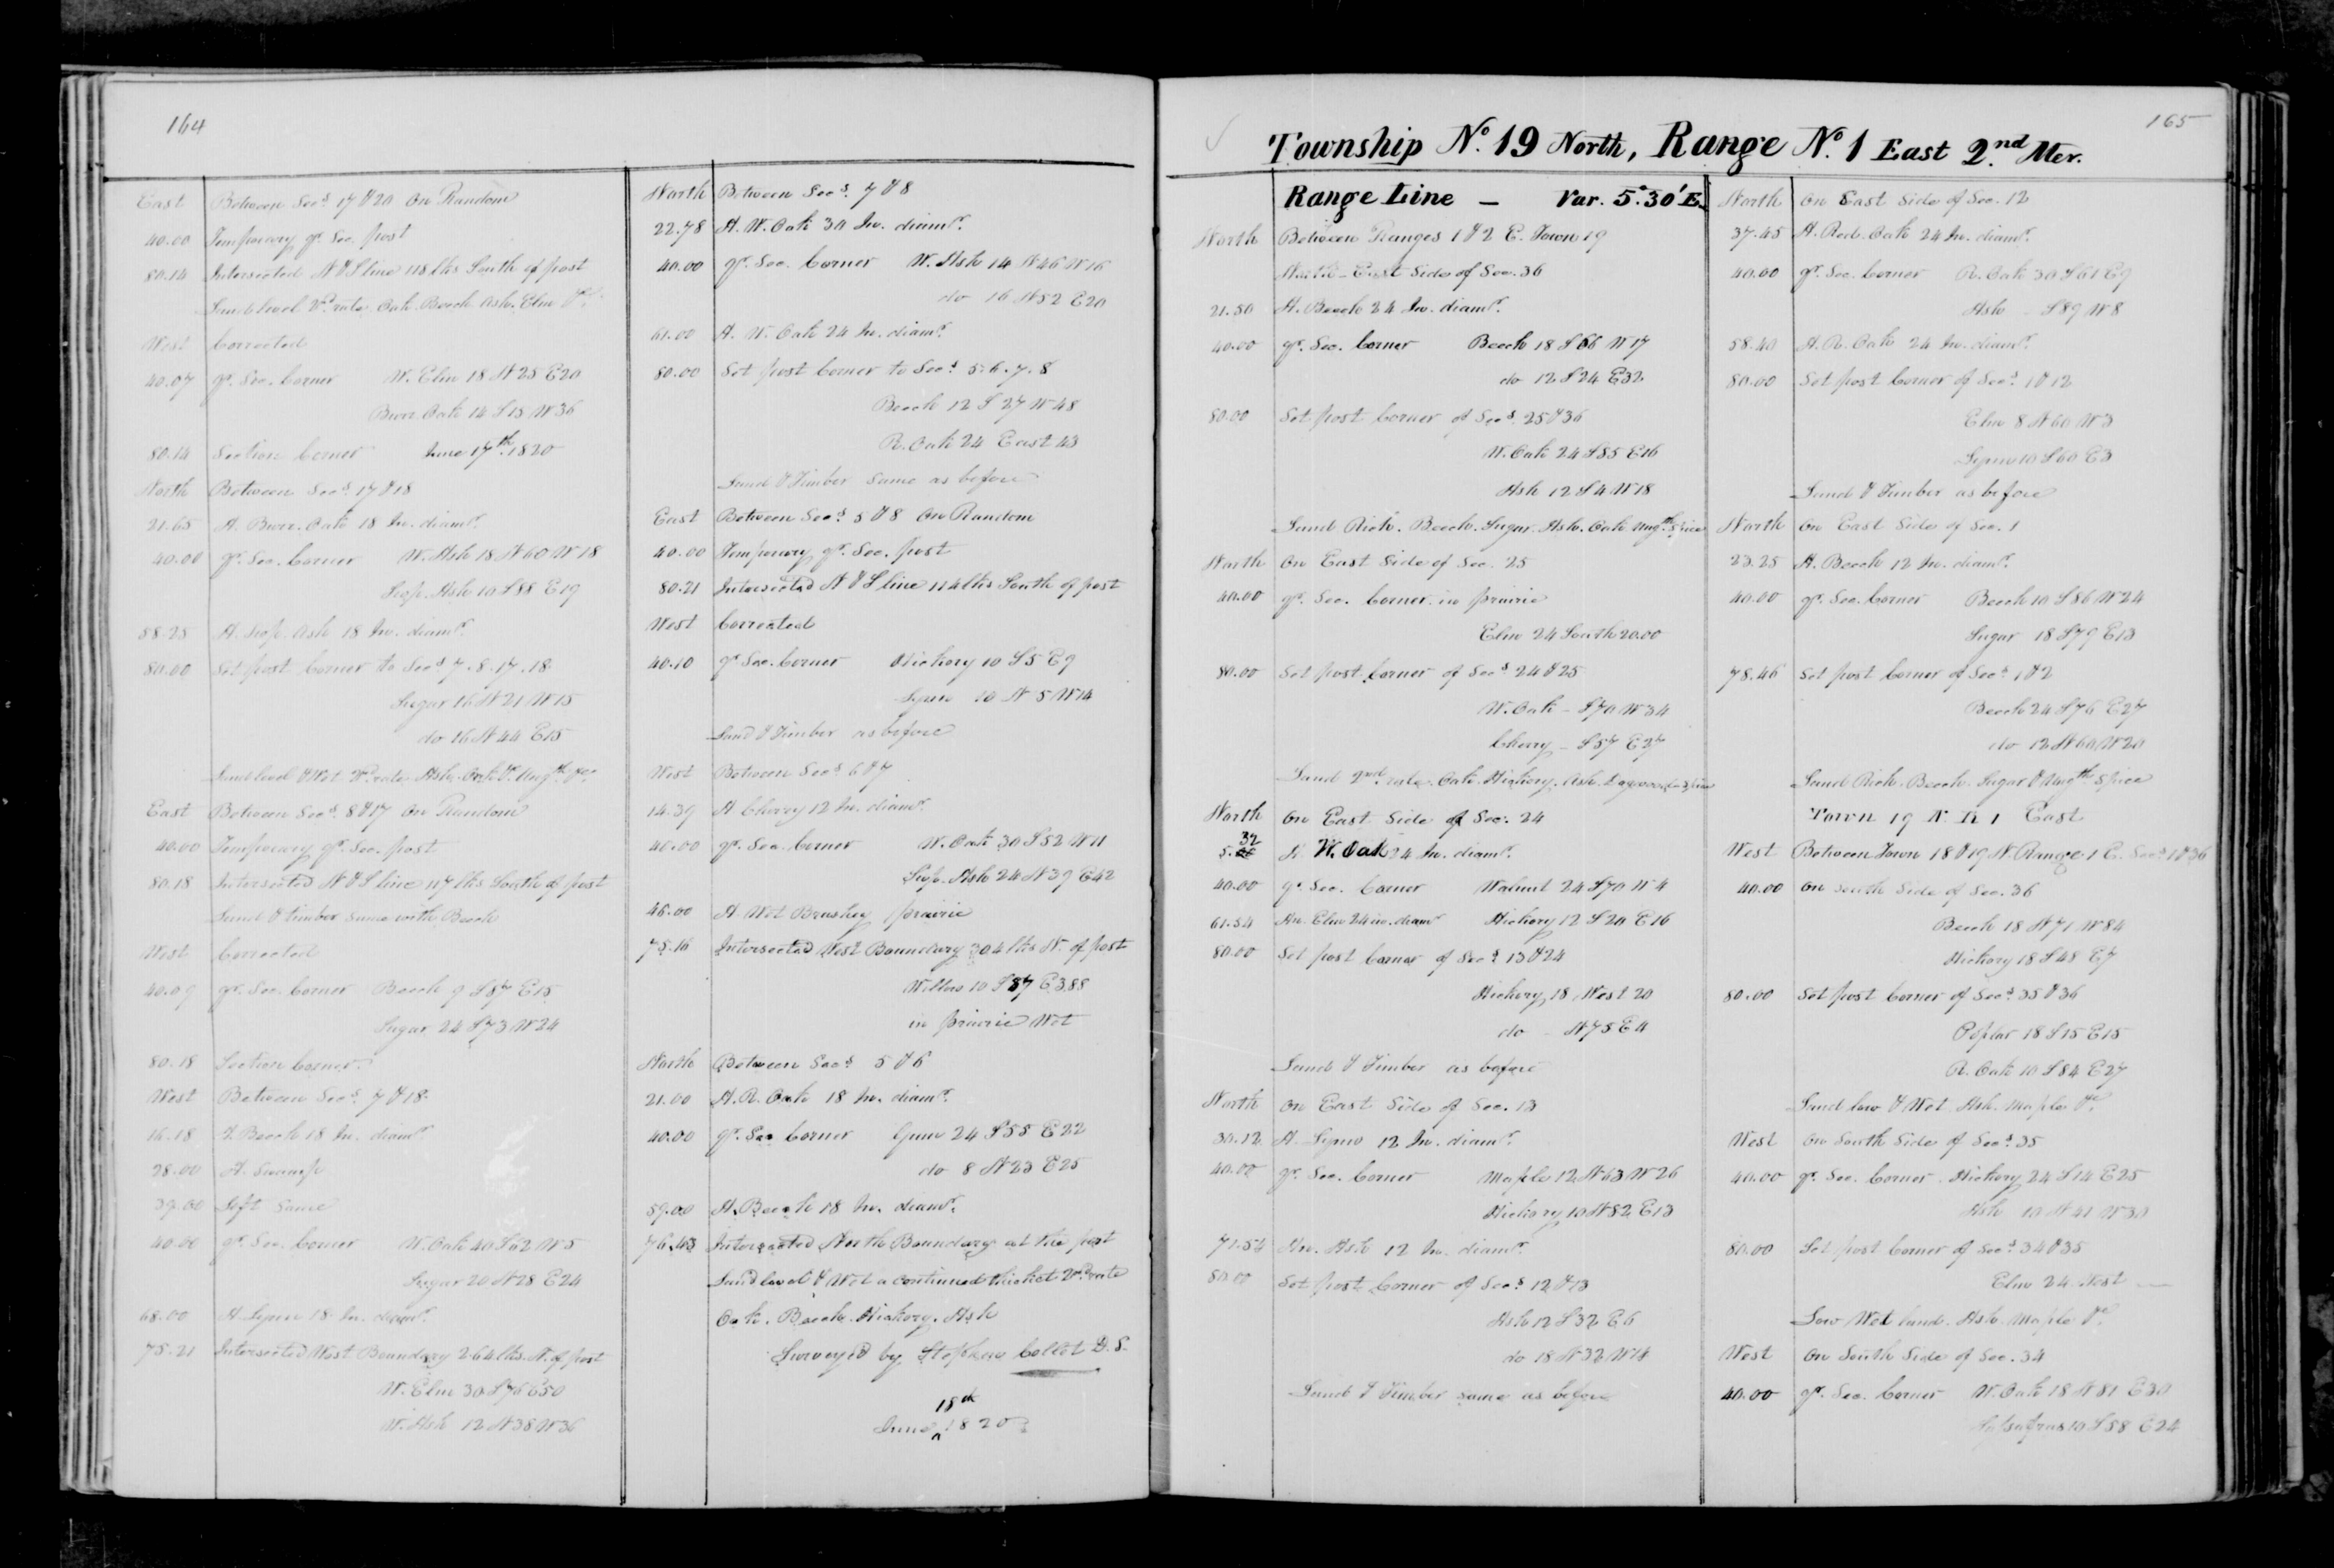 164
East Between Secs. 17 & 20 On Random
40.00 Temporary qr. Sec. post
80.14 Intersected N & S line 118 lks South of post
Land level 2d rate Oak. Beech Ash. Elm &c.
West Corrected
40.07 qr. Sec. Corner W. Elm 18 N 25 E 20
Burr. Oak 14 S 13 W 36
80.14 Section Corner June 17th. 1820
North Between Secs. 17 & 18
21.65 A. Burr. Oak 18 In. diamr.
40.00 qr. Sec. Corner W. Ash 18 N 60 W 18
Hoop. Ash 10 S 88 E 19
58.25 A. Hoop. Ash 18 In. diamr.
80.00 Set post Corner to Secs 7. 8. 17. 18.
Sugar 16 N 21 W 15
do 16 N 44 E 15
Land level & Wet 2d rate Ash. Oak &c. Ungth. &c.
East Between Secs. 8 & 17 On Random
40.00 Temporary qr. Sec. post
80.18 Intersected N & S line 117 lks South of post
Land & timber same with Beech
West Corrected
40.09 qr. Sec. Corner Beech 9 S 87 E 15
Sugar 24 S 73 W 24
80.18 Section Corner.
West Between Secs. 7 & 18.
16.18 A Beech 18 In. diamr.
28.00 A. Swamp
39.00 Left Same
40.00 qr. Sec. Corner W. Oak 40 S 62 W 5
Sugar 20 N 28 E 24
68.00 A Lynn 18 In. diamr.
75.21 Intersected West Boundary 264 lks. N. of post
W. Elm 30 S 76 E 50
W. Ash 12 N 38 W 36
North Between Secs. 7 & 8
22.78 A. W. Oak 30 In. diamr.
40.00 qr. Sec. Corner W. Ash 14 N 46 W 16
do 16 N 52 E 20
61.00 A. W. Oak 24 In. diamr.
80.00 Set post Corner to Secs 5. 6. 7. 8
Beech 12 S 27 W 48
R. Oak 24 East 43
Land & Timber Same as before
East Between Secs 5 & 8 On Random
40.00 Temporary qr. Sec. post
80.21 Intersected N & S line 114 lks South of post
West Corrected
40.10 qr. Sec. Corner Hickory 10 S 5 E 9
Lynn 10 N 5 W 14
Land & Timber as before
West Between Secs. 6 & 7
14.39 A Cherry 12 In. diamr.
40.00 qr. Sec. Corner W. Oak 30 S 52 W 11
Hoop. Ash 24 N 39 E 42
46.00 A. Wet Brushey prairie
75.16 Intersected West Boundary 304 lks N. of post
Willow 10 S 87 E 3.88
in prairie Wet
North Between Secs 5 & 6
21.00 A. R. Oak 18 In. diamr.
40.00 qr. Sec Corner Gum 24 S 55 E 22
do 8 N 23 E 25
59.00 A. Beech 18 In. diamr.
76.43 Intersected North Boundary at the post
Land level & Wet a continued thicket 2d rate
Oak. Beech. Hickory. Ash
Surveyed by Stephen Collet D. S.
18th
June ^ 1820
165
Township No. 19 North, Range No. 1 East 2nd Mer.
Range Line — Var. 5°.30' E.
North Between Ranges 1 & 2 E. Town 19
North - East Side of Sec. 36
21.50 A. Beech 24 In. diamr.
40.00 qr. Sec. Corner Beech 18 S 66 W 17
do 12 S 24 E 32
80.00 Set post Corner of Secs 25 & 36
W. Oak 24 S 85 E 16
Ash 12 S 4 W 18
Land Rich. Beech. Sugar. Ash. Oak Ungth. Spice
North On East Side of Sec. 25
40.00 qr. Sec. Corner in prairie
Elm 24 South 20.00
80.00 Set post Corner of Secs 24 & 25
W. Oak - S 70 W 34
Cherry - S 57 E 27
Land 2nd. rate. Oak. Hickory. Ash. Dogwood & Spice
North On East Side of Sec. 24
32
5. A W. Oak 24 In. diamr.
40.00 qr. Sec. Corner Walnut 24 S 70 W 4
61.54 An. Elm 24 in. diamr Hickory 12 S 24 E 16
80.00 Set post Corner of Secs 13 & 24
Hickory 18 West 20
do - N 75 E 11
Land & Timber as before
North On East Side of Sec. 13
30.12 A. Lynn 12 In. diamr.
40.00 qr. Sec. Corner Maple 12 N 63 W 26
Hickory 10 N 82 E 13
71.54 An. Ash 12 In. diamr.
80.00 Set post Corner of Secs 12 & 13
Ash 12 S 32 E 6
do 18 N 32 W 14
Land & Timber same as before
North On East Side of Sec. 12
37.45 A. Red. Oak 24 In. diamr.
40.00 qr. Sec. Corner R. Oak 30 S 61 E 9
Ash - S 89 W 8
58.40 A. R. Oak 24 In. diamr.
80.00 Set post Corner of Secs. 1 & 12
Elm 8 N 60 W 3
Lynn 10 S 60 E 3
Land & Timber as before
North On East Side of Sec. 1
23.25 A. Beech 12 In. diamr.
40.00 qr. Sec. Corner Beech 10 S 86 W 24
Sugar 18 S 79 E 13
78.46 Set post Corner of Secs 1 & 2
Beech 24 S 76 E 27
do 12 N 60 W 20
Land Rich. Beech. Sugar & Ungth Spice
Town 19 N. R 1 East
West Between Town 18 & 19 N. Range 1 E. Secs 1 & 36
40.00 On South Side of Sec. 36
Beech 18 N 71 W 84
Hickory 18 S 48 E 7
80.00 Set post Corner of Secs 35 & 36
Poplar 18 S 15 E 15
R. Oak 10 S 84 E 27
Land low & Wet. Ash. Maple &c.
West On South Side of Secs 35
40.00 qr. Sec. Corner. Hickory 24 S 14 E 25
Ash 10 N 41 W 30
80.00 Set post Corner of Secs 34 & 35
Elm 24 West —
Low Wet land. Ash. Maple &c
West On South Side of Sec. 34
40.00 qr. Sec. Corner W. Oak 18 N 81 E 30
Sassafras 10 S 58 E 24